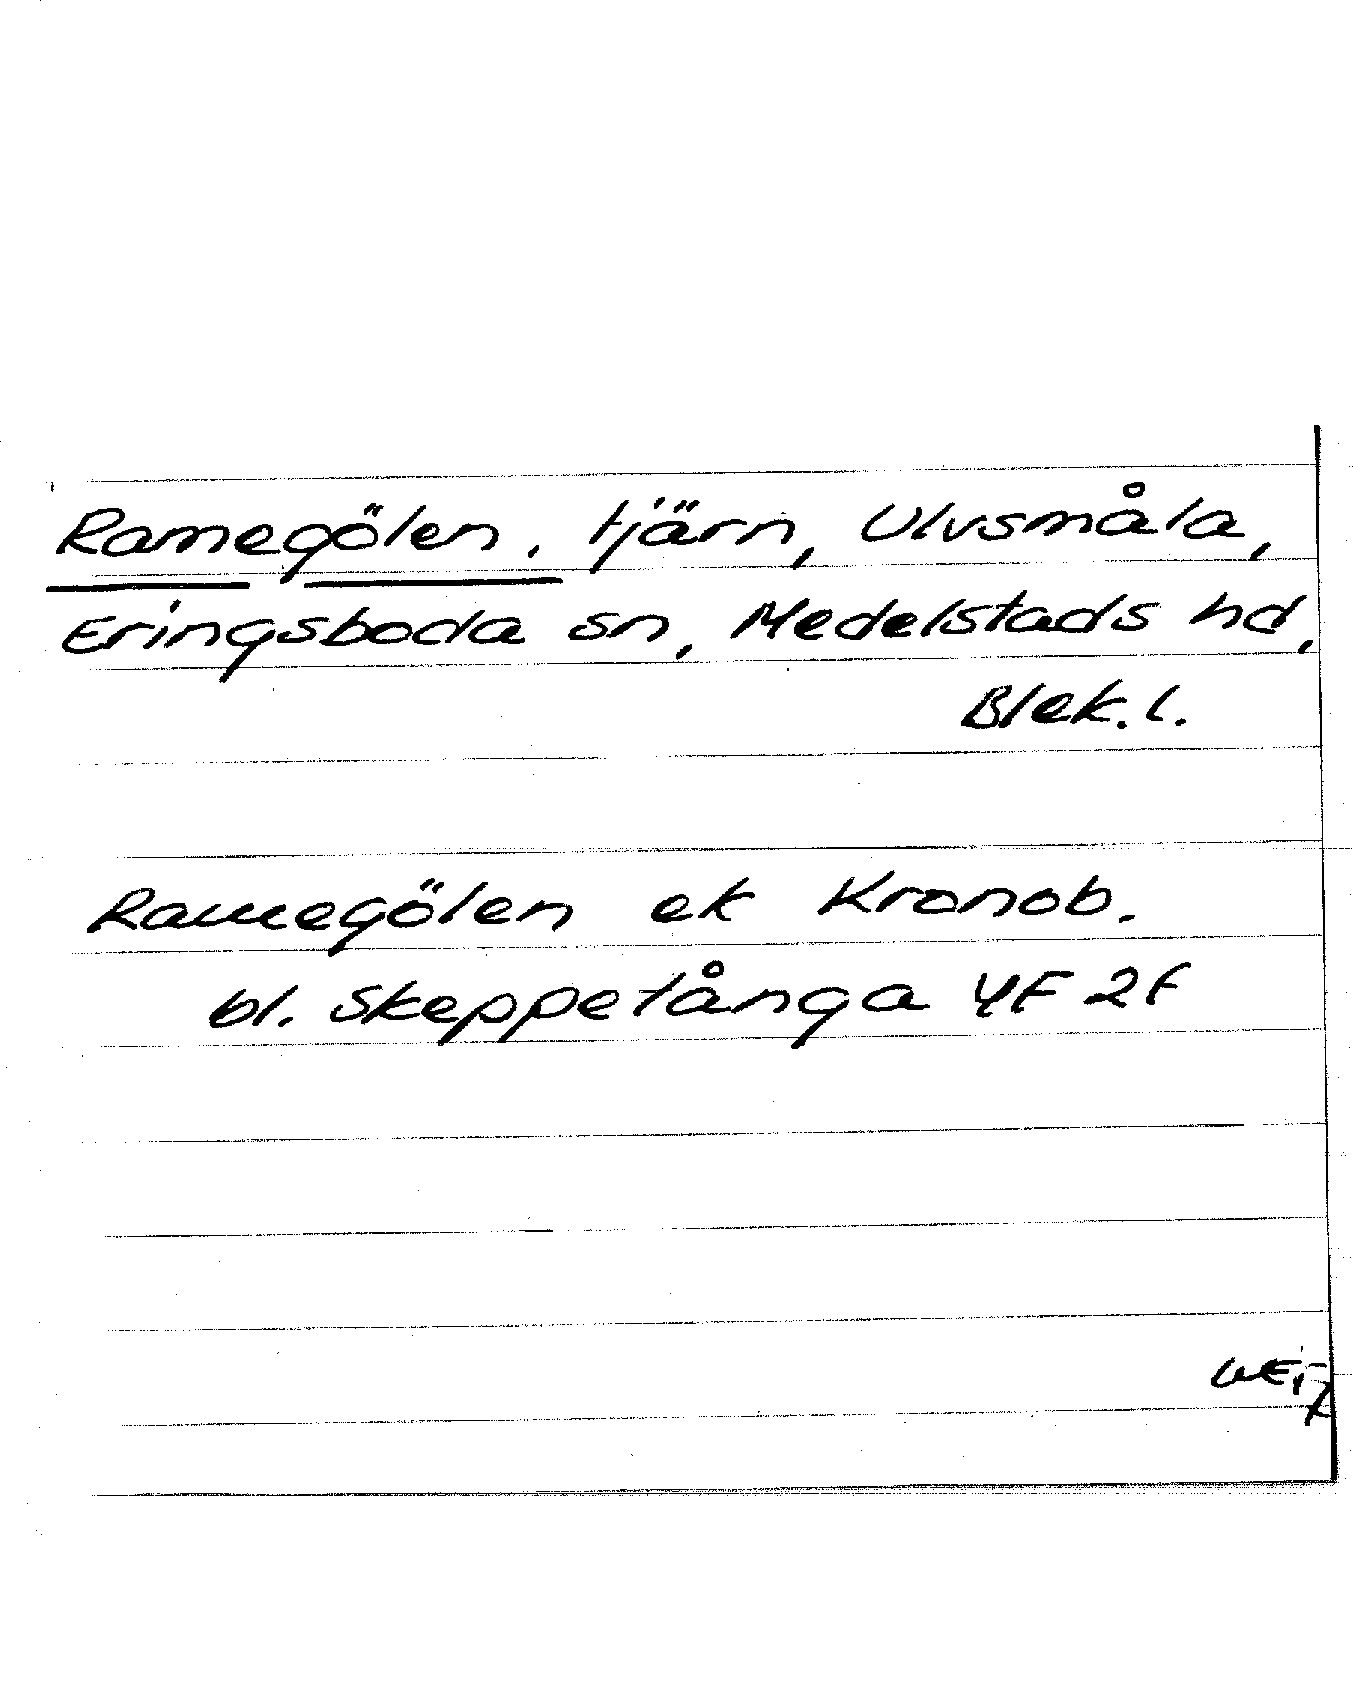 Ramegölen, tjärn, Ulvsmåla,
Eringsboda sn, Medelstads hd,
Blek. l.
Ramegölen ek Kronob.
bl. Skeppetånga 4F 2f